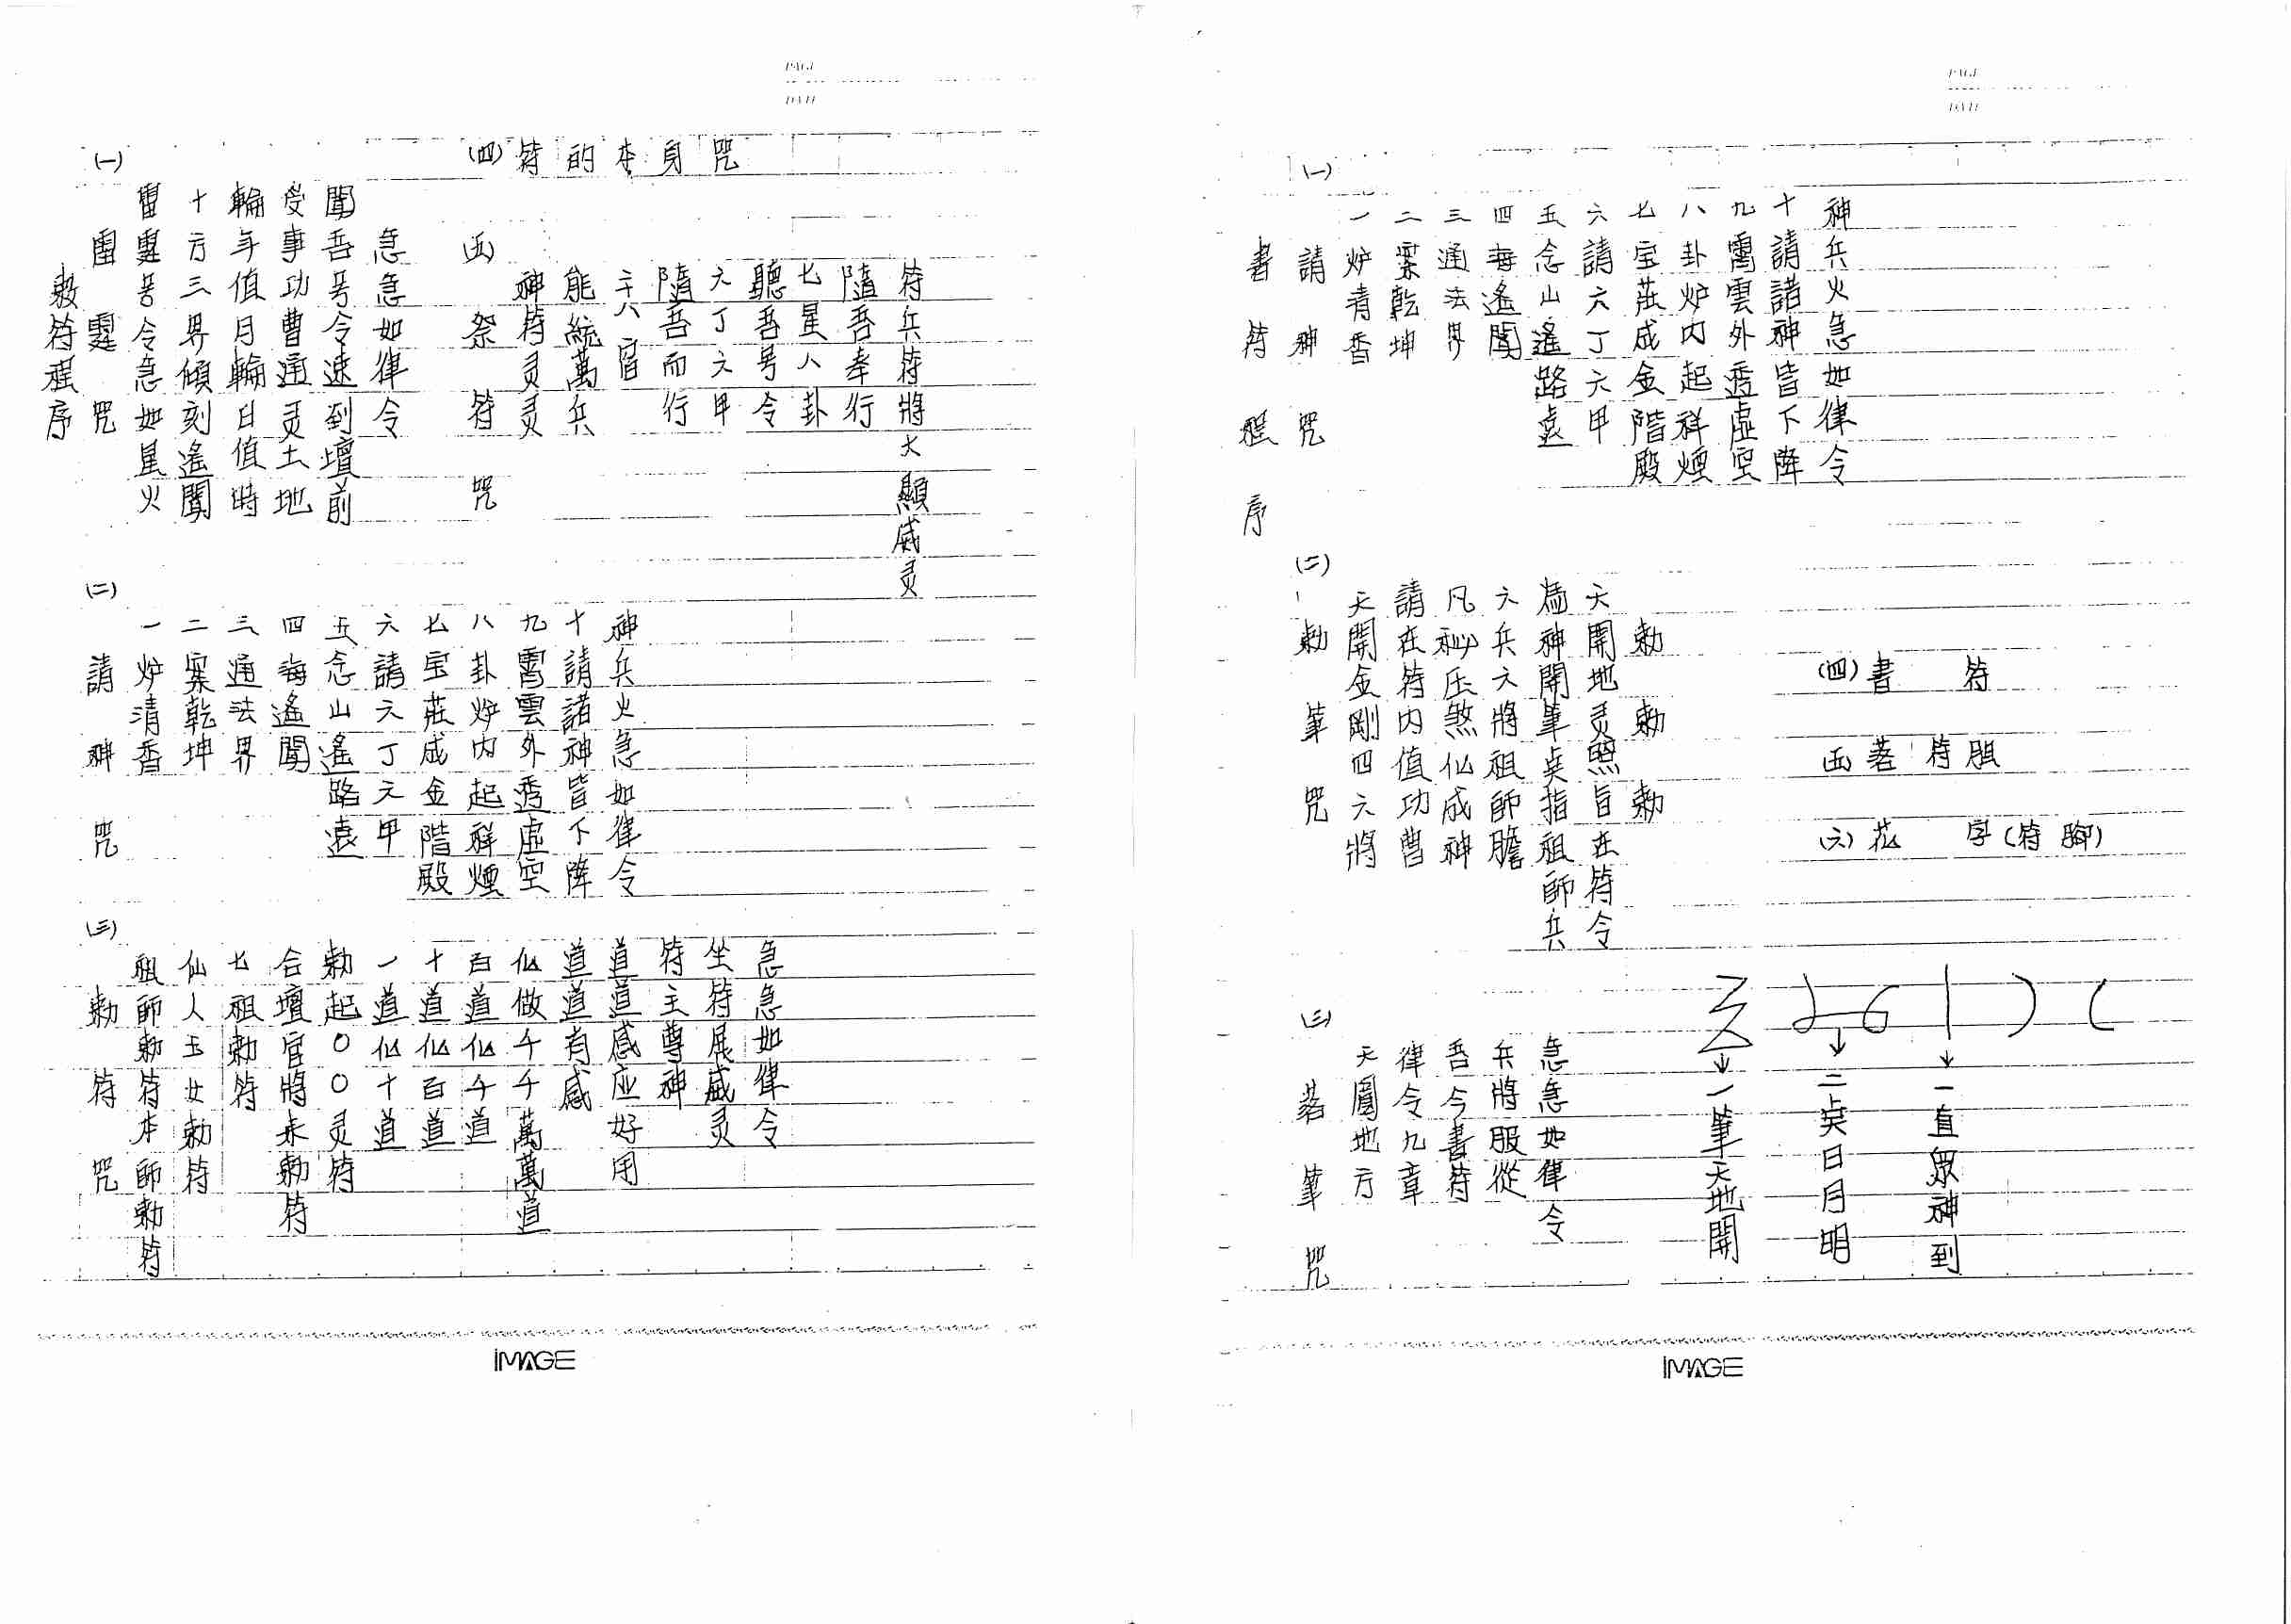 PAGE
DATE
敕符程序
(一)
雷霆咒
雷霆号令急如星火
十方三界傾刻遙聞
輪年值月輪日值時
受事功曹通灵土地
聞吾号令速到壇前
急急如律令
(二)
請神咒
一炉清香
二案乾坤
三通法界
四海遙聞
五念山遙路遠
六請六丁六甲
七宝莊成金階殿
八卦炉内起祥煙
九霄雲外透虛空
十請諸神皆下降
神兵火急如律令
(三)
勅符咒
祖師勅符本師勅符
仙人玉女勅符
七祖勅符
合壇官將未勅符
勅起〇〇灵符
一道仙十道
十道仙百道
百道仙千道
仙做千千萬萬道
道道有感
道道感应好用
符主尊神
坐符展威灵
急急如律令
(四)符的本身咒
(五)
祭符咒
神符灵灵
能統萬兵
二十八宿
隨吾而行
六丁六甲
聽吾号令
七星八卦
隨吾奉行
符兵符將大顯威灵
IMAGE
PAGE
DATE
書符程序
(一)
請神咒
一炉青香
二案乾坤
三通法界
四海遙聞
五念山遙路遠
六請六丁六甲
七宝莊成金階殿
八卦炉内起祥煙
九霄雲外透虛空
十請諸神皆下降
神兵火急如律令
(二)
勅筆咒
天開金剛四六將
請在符内值功曹
凡秘压煞仙成神
六兵六將祖師膽
為神開筆奌指祖師兵
天開地灵照旨在符令
勅勅勅
(三)
落筆咒
天圓地方
律令九章
吾今書符
兵將服從
急急如律令
(四)書符
(五)落符胆
(六)花字(符腳)
一筆天地開
二奌日月明
一直眾神到
IMAGE